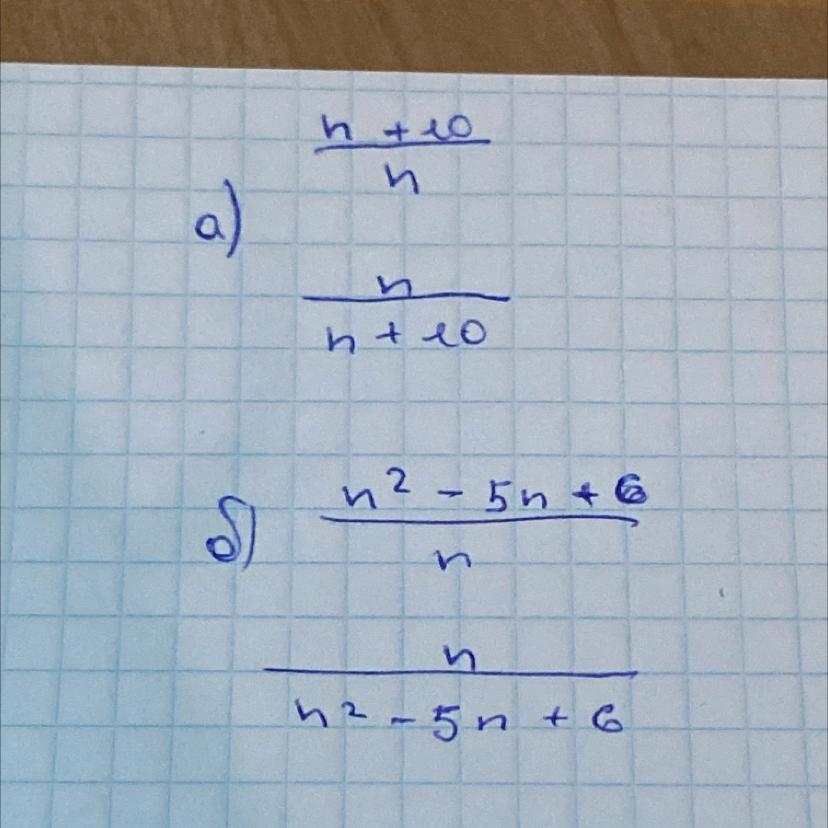 n + 10
n
а)
n
n + 10
n² - 5n + 6
б)
n
n
n² - 5n + 6